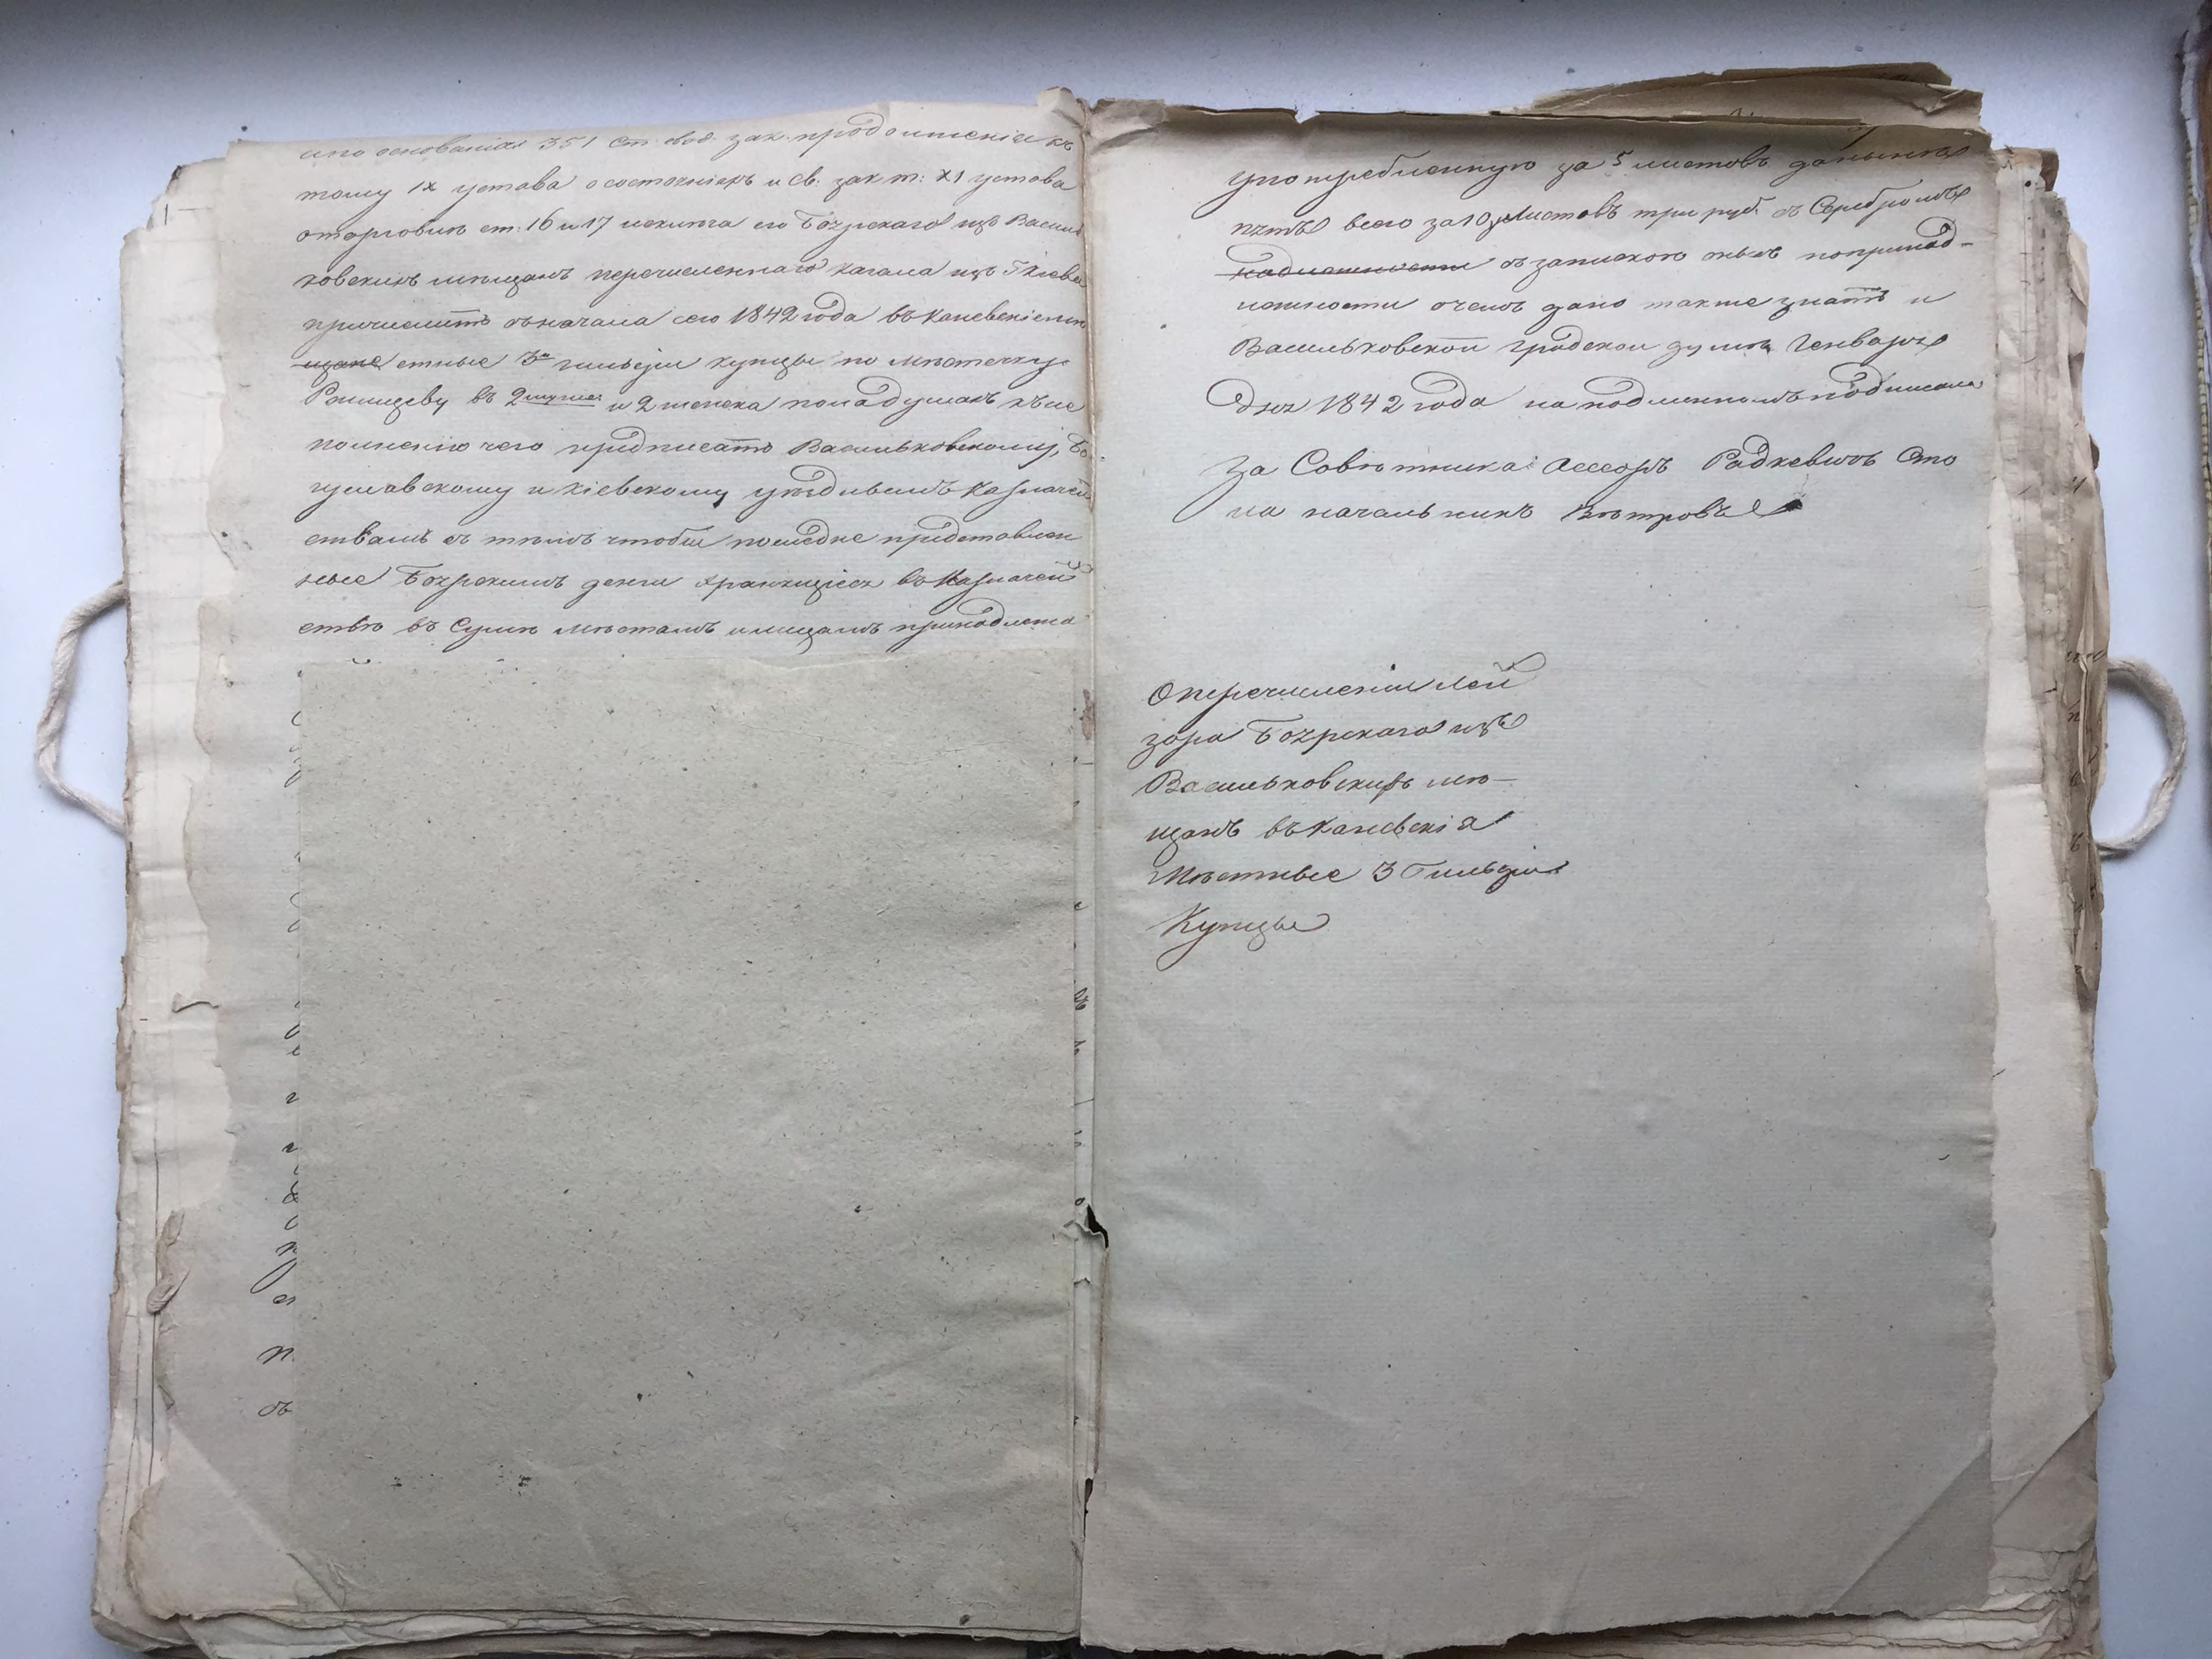 и по основанiя 351 ст. свод. зак. продолженiя къ
тому IX устава о состоянiяхъ и св. зак. т: XI устава
о торговлѣ ст: 16 и 17 исключа его Боярскаго изъ Василь
ковскихъ мѣщанъ перечисленнаго кагала изъ Кiева
причислить съ начала сего 1842 года въ Каневскiе
стные 3й гильдiи купцы по мѣстечку
Ромищеву въ 2 муже: и 2 женска пола душахъ къ ис
полненiю чего предписать Васильковскому, Бо
гуславскому и Кiевскому уѣзднымъ казначей
ствамъ съ тѣмъ чтобы послѣдне представлен
ные Боярскимъ денги хранящiеся въ Казначей
ствѣ въ Сумѣ мѣстамъ и лицамъ принадлежа
употребленную за 5 листовъ данныхъ
всего за 10 листовъ три руб. съ Серебромъ
надлежности съ запискою оныхъ попринад-
лежности о чемъ дано также знать и
Васильковской градской думѣ Генваря
Дня 1842 года на подлинномъ подписали
За Совѣтника: Асесоръ Радкевичъ Сто
ла начальникъ Вѣтровъ
О перечисленiи Лей
зора Боярскаго изъ
Васильковскихъ мѣ-
щанъ въ Каневскiя
Мѣстные 3 Гильдiи
Купцы